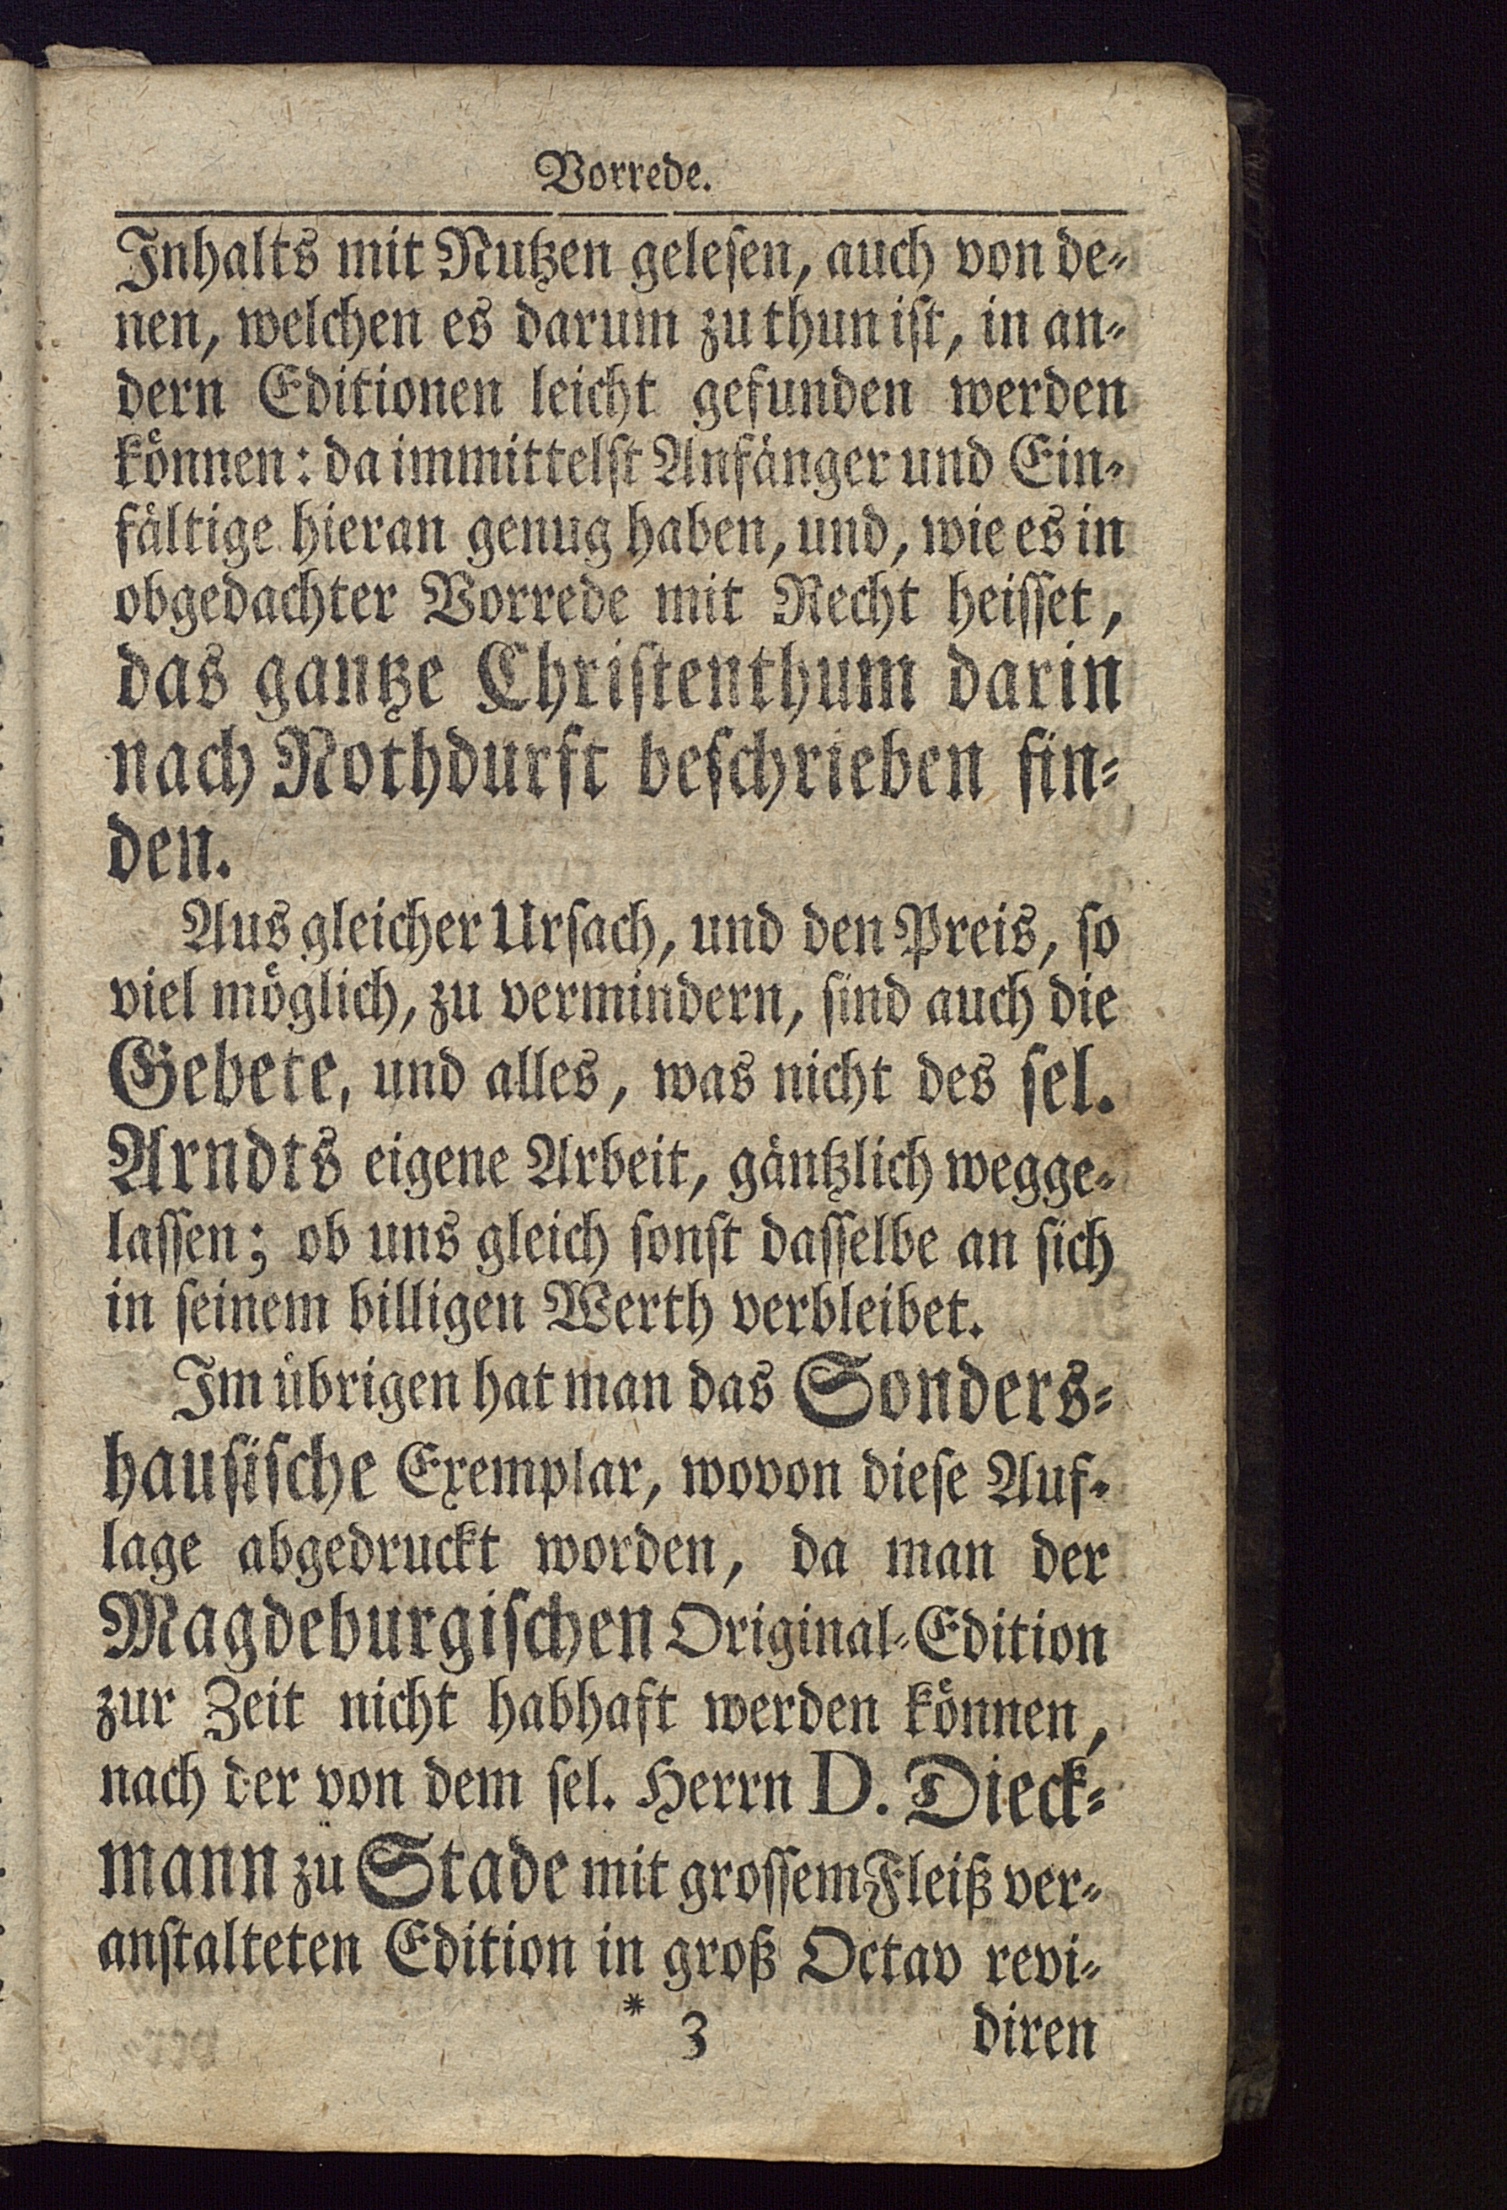 Vorrede.
Inhalts mit Nutzen gelesen, auch von de-
nen, welchen es darum zu thun ist, in an-
dern Editionen leicht gefunden werden
können: da immittelst Anfänger und Ein-
fältige hieran genug haben, und, wie es in
obgedachter Vorrede mit Recht heisset,
das gantze Christenthum darin
nach Nothdurft beschrieben fin-
den.
Aus gleicher Ursach, und den Preis, so
viel möglich, zu vermindern, sind auch die
Gebete, und alles, was nicht des sel.
Arndts eigene Arbeit, gäntzlich wegge-
lassen; ob uns gleich sonst dasselbe an sich
in seinem billigen Werth verbleibet.
Im übrigen hat man das Sonders-
hausische Exemplar, wovon diese Auf-
lage abgedruckt worden, da man der
Magdeburgischen Original-Edition
zur Zeit nicht habhaft werden können,
nach der von dem sel. Herrn D. Dieck-
mann zu Stade mit grossem Fleiß ver-
anstalteten Edition in groß Octav revi-
* 3 diren